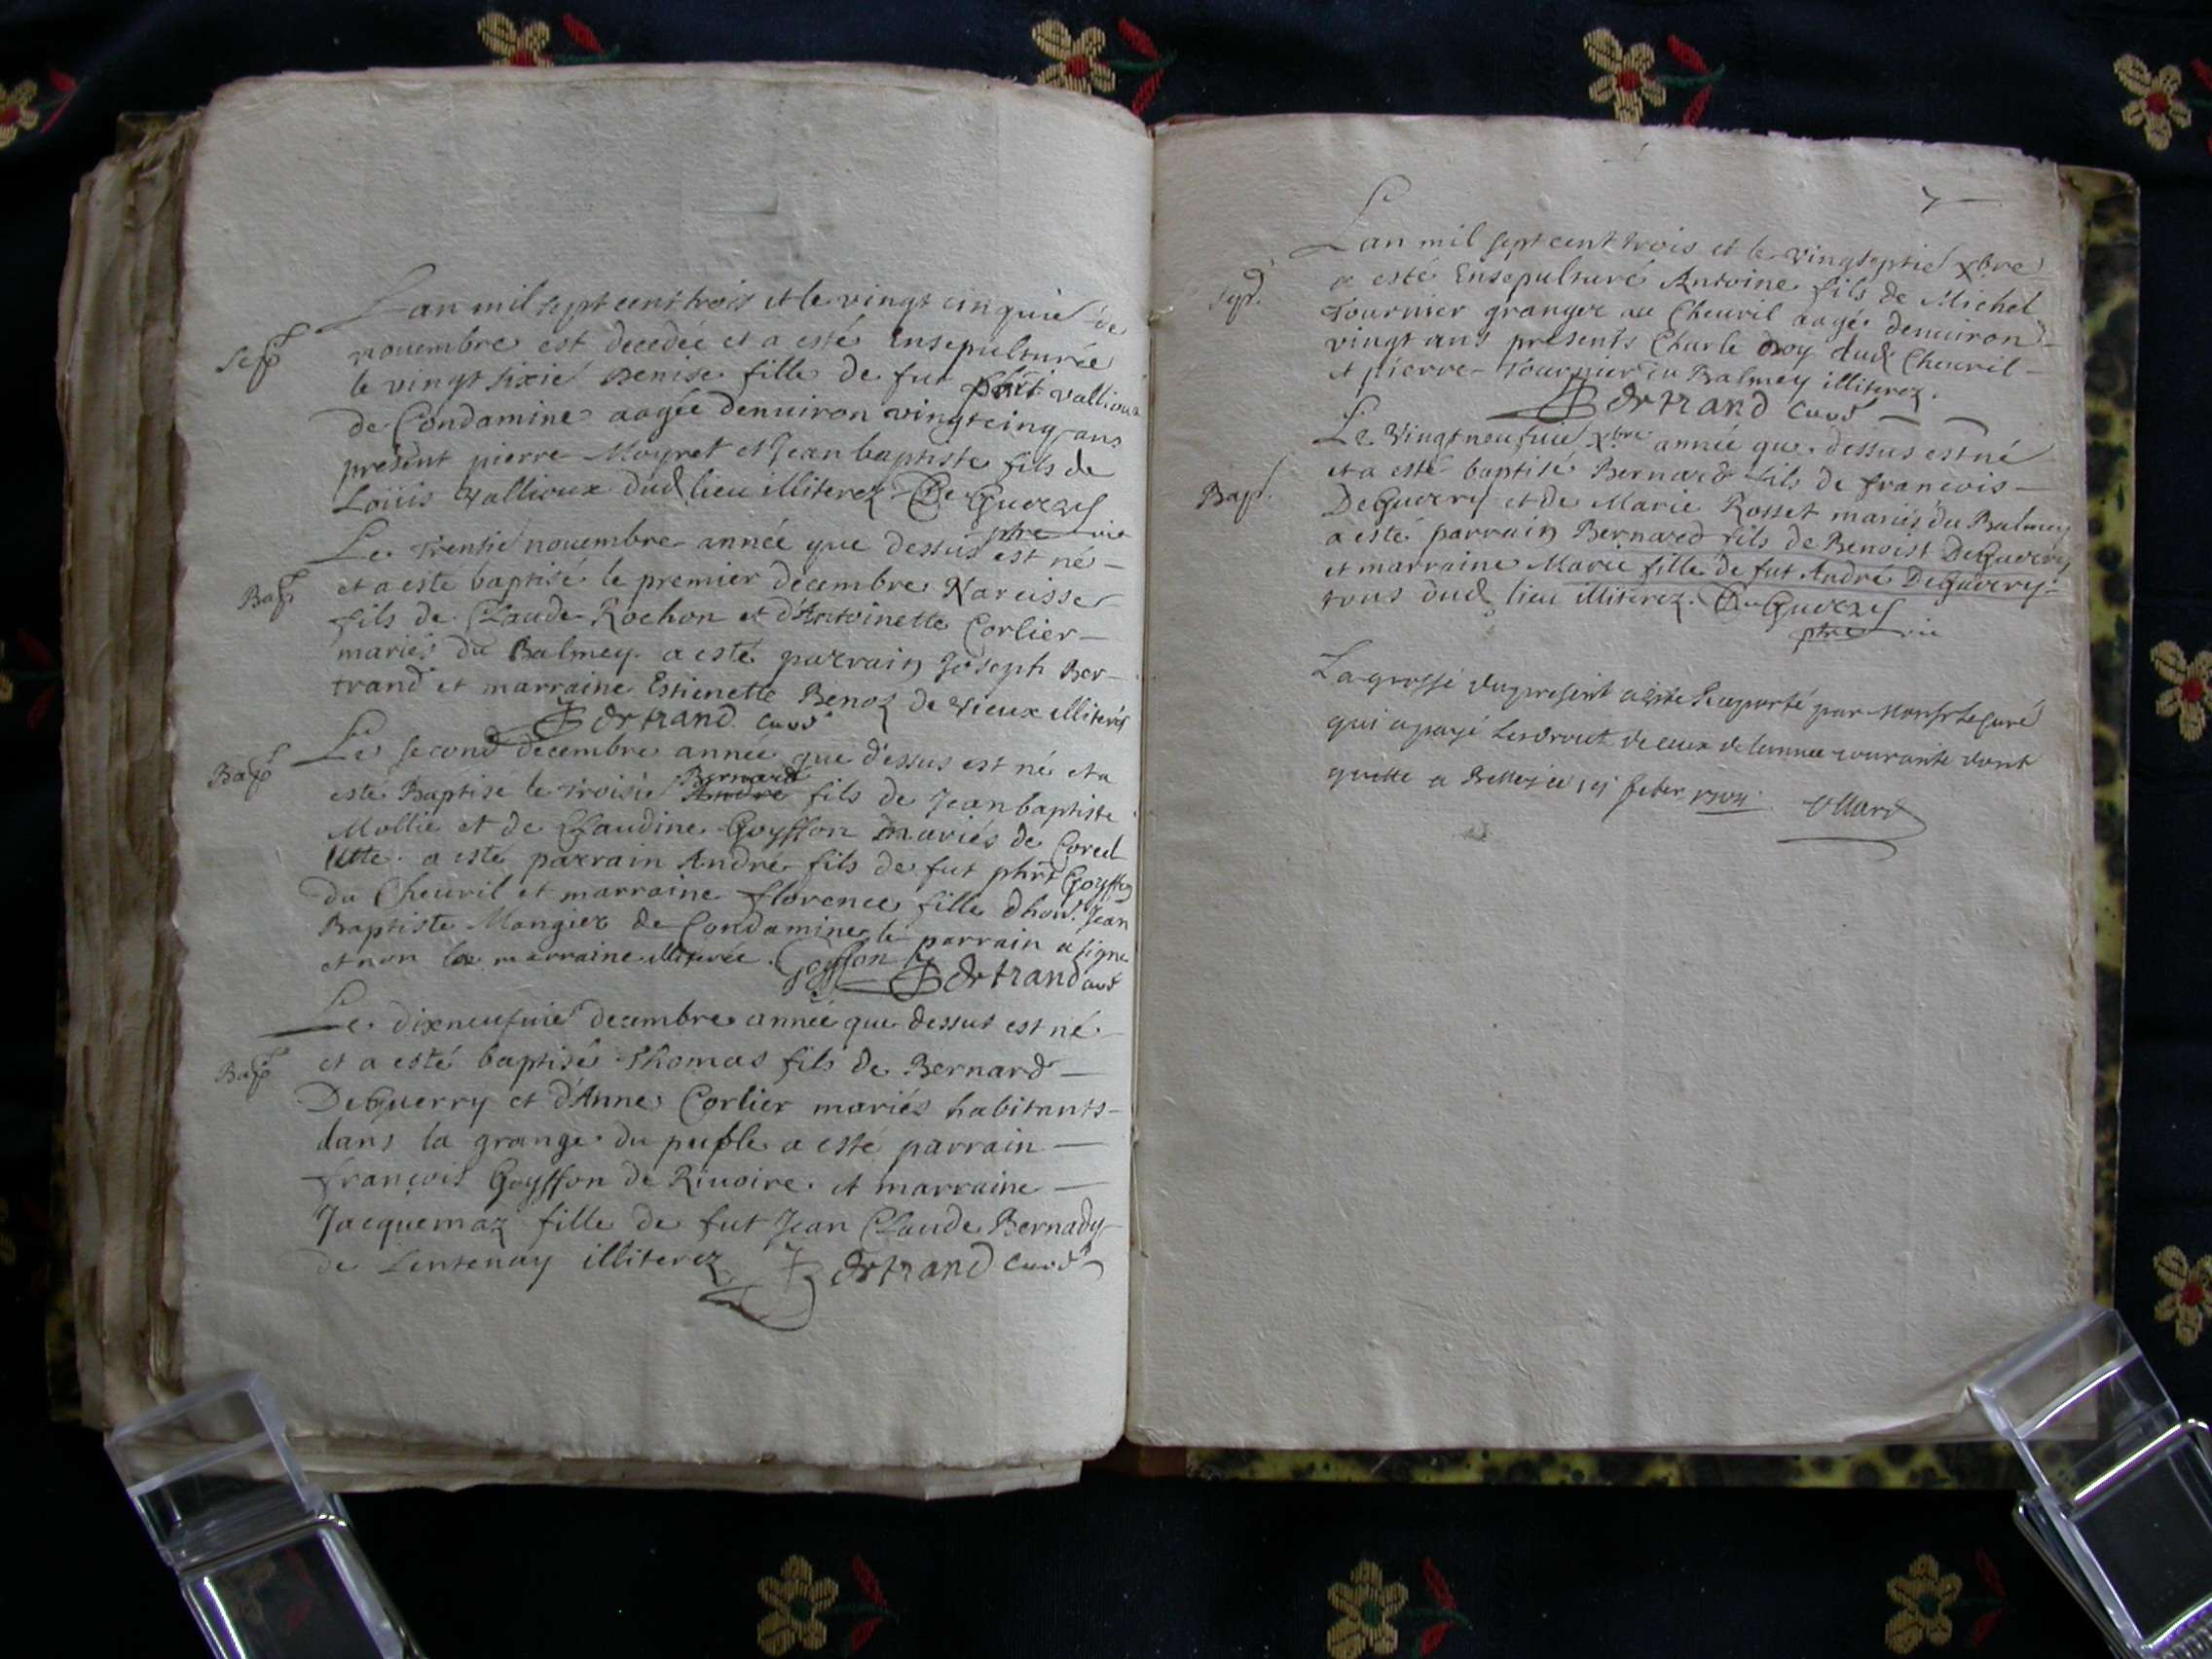 Lan mil sept cent trois et le vingt cinquie de
Sep.
novembre est decedée et a esté Ensepulturée
le vingt sixie Denise fille de fut phrt vallioux
de Condamine aagée denuiron vingt cinq ans
présent pierre Moyret et Jean baptiste fils de
Loüis Vallioux dud lieu illiterez DeGuerry
ptre vic
Le Trentie nouembre année que dessus est né
Bap
et a este baptisé le premier decembre Narcisse
fils de Claude Rochon et d'Antoinette Corlier
mariés du Balmey. a esté parrain Joseph Ber-
trand et marraine Estienette Benoz de Vieux illiterés
Bertrand curé
Le second decembre année que dessus est né et a
Bap
este Baptisé le troisie Bernard André fils de Jean baptiste
Mollie et de Claudine Goyffon mariés de
a esté parrain André fils de fut phrt Goyffon
du Cheuril et marraine florence fille d'hon. Jean
Baptiste Mangier de Condamine le parrain a signé
et non la marraine illiterée. Goyffon Bertrand curé
Le dixneufuie decembre année que dessus est né
Bap
et a esté baptisé Thomas fils de Bernard
DeGuerry et d'Anne Corlier mariés habitants
dans la grange du puble a esté parrain
françois Goyffon de Riuoire et marraine
Jacquemaz fille de fut Jean Claude Bernady
de Lentenay illiterez Bertrand curé
7
Lan mil sept cent trois et le vingseptie xbre
Sep.
a esté Ensepulturé Antoine fils de Michel
Tournier granger au Cheuril aagé denuiron
vingt ans présents Charle Roy dud Cheuril
et pierre Tournier du Balmey illiterez.
Bertrand curé
Le Vingtneufuie xbre année que dessus est né
Bap.
et a esté baptisé Bernard fils de françois
DeGuerry et de Marie Rosset mariés du Balmey
a esté parrain Bernard fils de Benoist DeGuerry
et marraine Marie fille de fut André DeGuerry
tous dud lieu illiterez. DeGuerry
ptre vic
La grosse du present a este Raporté par Monsr le curé
qui a payé les droit de ceux de lannee courante dont
quitte a Belley ce feber